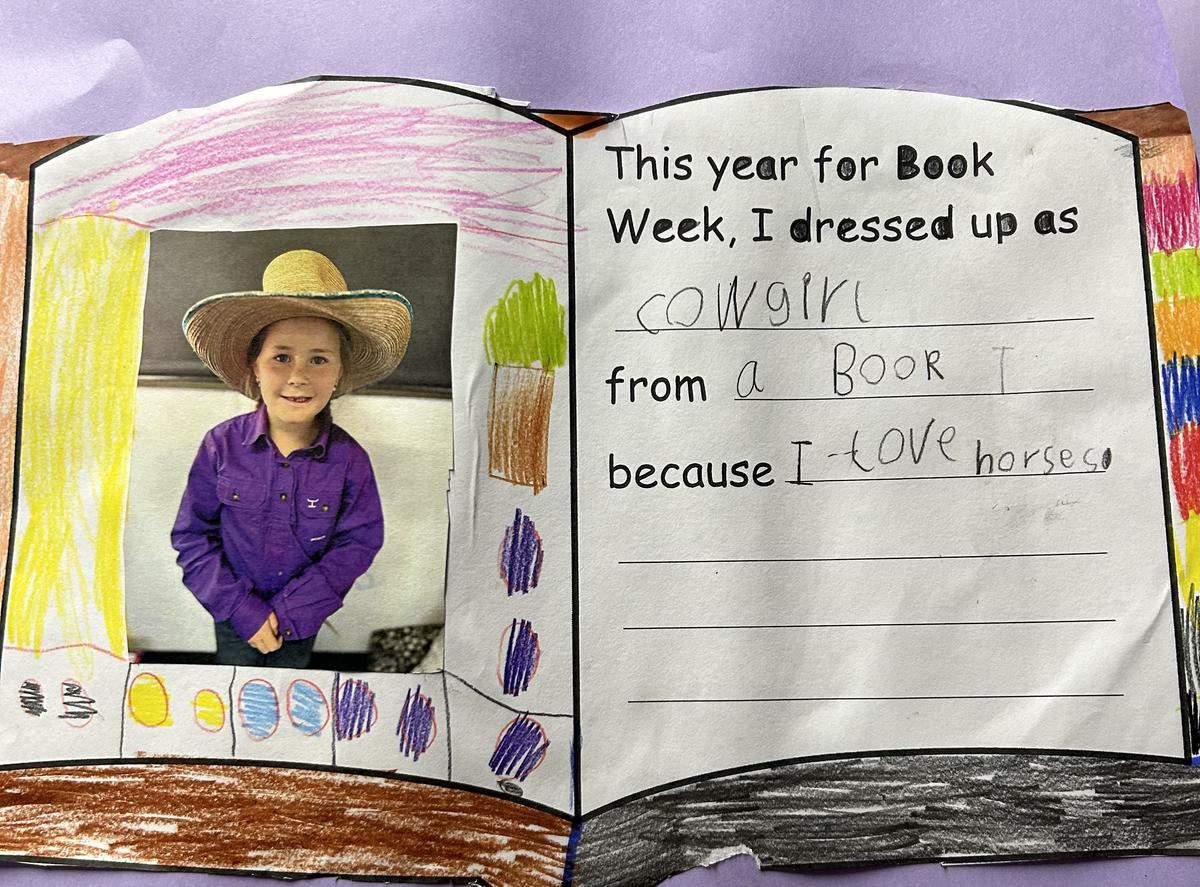 This year for Book
Week, I dressed up as
cowgirl
from a BOOK I
because I love horses.